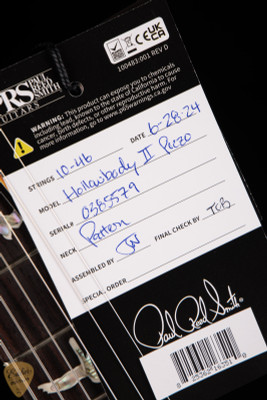 PRS
PAUL
REED
SMITH
GUITARS
UK
CA CE
100483:001 REV D
WARNING:
This product can expose you to chemicals
including lead, known to the state of California to cause
cancer, birth defects, or other reproductive harm.
www.prswarnings.ca.gov
STRINGS 10-46 DATE 6-28-24
MODEL Hollowbody II Piezo
SERIAL# 0385579
NECK Pattern
ASSEMBLED BY FINAL CHECK BY TCB
SPECIAL ORDER
Paul Reed Smith